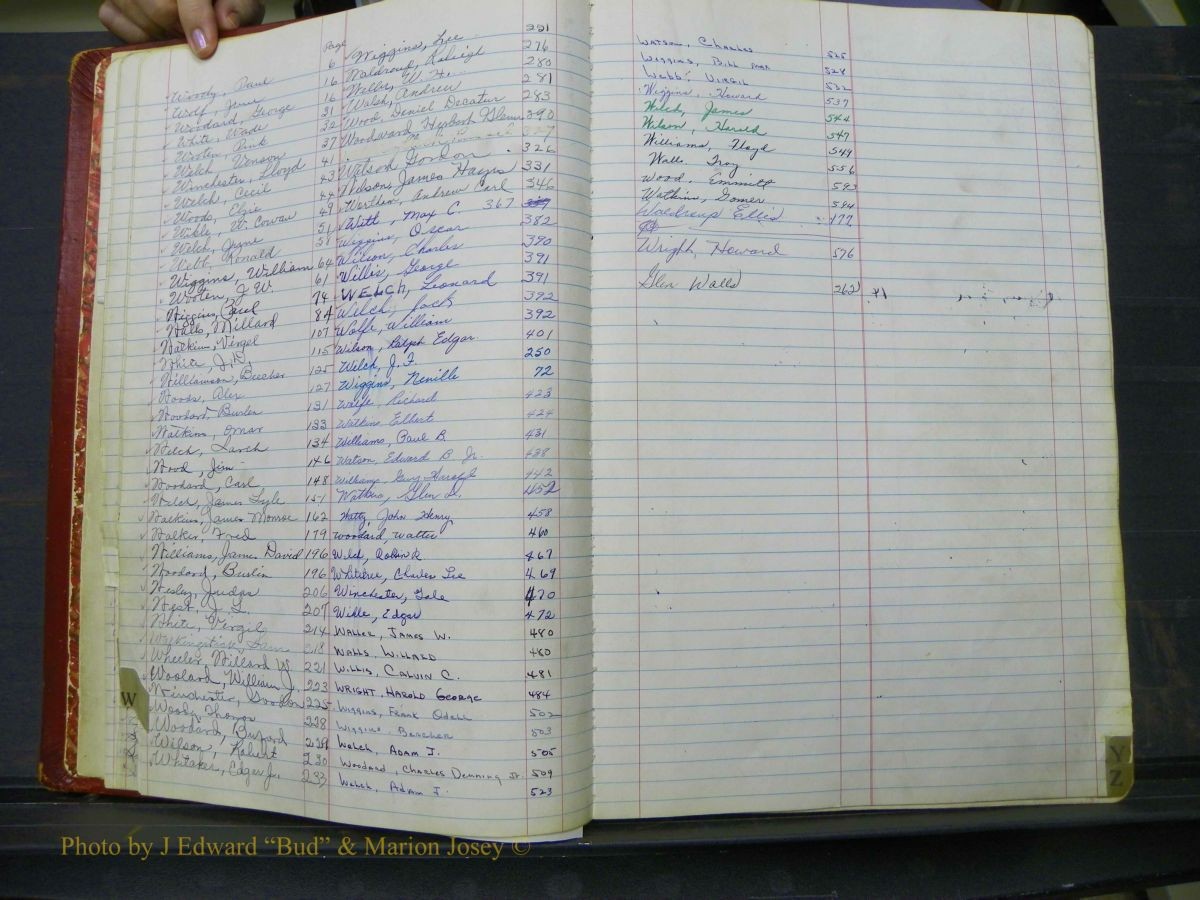 Page
Woody, Paul 6
Wolf, June 16
Woodard, George 16
White, Wade 21
Wooten, Pink 22
Welch, Venson 27
Winchester, Lloyd 41
Welch, Cecil 43
Woods, Elsie 44
Wikle, W. Cowan 49
Welch, Jayne 51
Webb, Ronald 58
Wiggins, William 64
Wooten, J. W. 61
Wiggins, Carl 74
Walls, Millard 84
Watkins, Virgel 107
White, J. D. 115
Williamson, Beecher 125
Woods, Alex 127
Woodard, Burlin 131
Watkins, Omar 133
Welch, Larch 134
Wood, Jim 146
Woodard, Carl 148
Welch, James Lyle 151
Watkins, James Monroe 162
Walker, Fred 179
Williams, James David 196
Woodard, Burlin 196
Wesley, Judge 206
West, J. L. 207
White, Vergil 214
Workingstick, Sam 218
Wheeler, Willard W. 221
Woolard, William J. 223
Winchester, Gordon 225
Woods, Thomas 228
Woodard, Buford 228
Wilson, Robert 230
Whitaker, Edgar Jr. 233
W
Wiggins, Lee 221
Waldroup, Raleigh 276
Wells, W. H. 280
Walsh, Andrew 281
Wood, Daniel Decatur 283
Woodward, Herbert Glenn 290
Watson Gordon 326
Wilson, James Hayes 331
Worthen, Andrew Carl 346
Witt, Max C. 367
Wiggins, Oscar 382
Wilson, Charles 390
Willis, George 391
WELCH, Leonard 391
Welch, Jack 392
Wolfe, William 392
Wilson, Ralph Edgar 401
Welch, J. F. 250
Wiggins, Neville 72
Wolfe, Richard 423
Watkins Elbert 424
Williams, Paul B. 431
Watson, Edward B. Jr. 438
Williams, Guy Harold 442
Watkins, Glen D. 452
Watty, John Henry 458
Woodard, Walter 460
Wild, Robin R. 467
Whiteree, Charles Lee 469
Winchester, Gale 470
Wikle, Edgar 472
WALLER, JAMES W. 480
WALLS, WILLARD 480
WILLIS, CALVIN C. 481
WRIGHT, HAROLD GEORGE 484
Wiggins, Frank Odell 502
Wiggins, Beecher 503
Welch, Adam J. 505
Woodard, Charles Denning Jr. 509
Welch, Adam J. 523
WATSON, CHARLES 525
WIGGINS, BILL 528
WEBB, VIRGIL 532
Wiggins, Howard 537
Welch, James 544
Wilson, Harold 547
Williams, Floyd 549
Walls, Troy 556
Wood, Emmitt 593
Watkins, Gomer 594
Waldroup Ellis 177
Wright, Howard 576
Glen Walls 262
Y
Z
Photo by J Edward “Bud” & Marion Josey ©